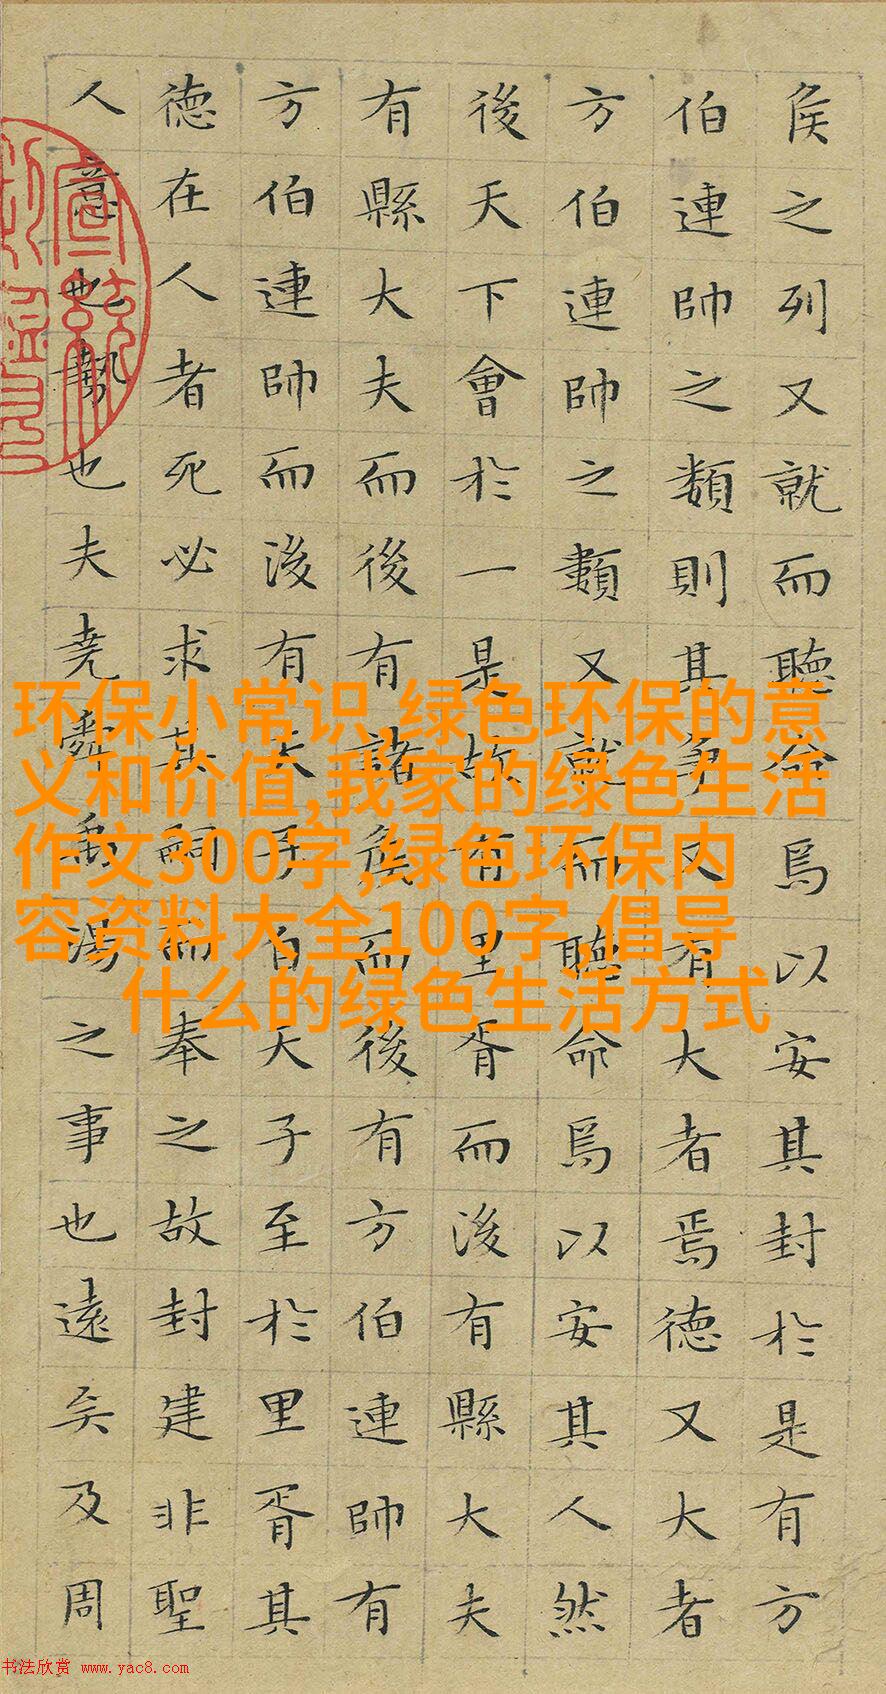 侯之列又就而聽命焉以安其封於是有方
伯連帥之類則其爭又有大者焉德又大者
方伯連帥之類又就而聽命焉以安其人然
後天下會於一是故有里胥而後有縣大夫
有縣大夫而後有諸侯而後有方伯連帥有
方伯連帥而後有天子自天子至於里胥其
德在人者死必求其嗣而奉之故封建非聖
人意也勢也夫堯舜禹湯之事也遠矣及周
环保小常识,绿色环保的意
义和价值,我家的绿色生活
作文300字,绿色环保内
容资料大全100字,倡导
什么的绿色生活方式
书法欣赏 www.yac8.com